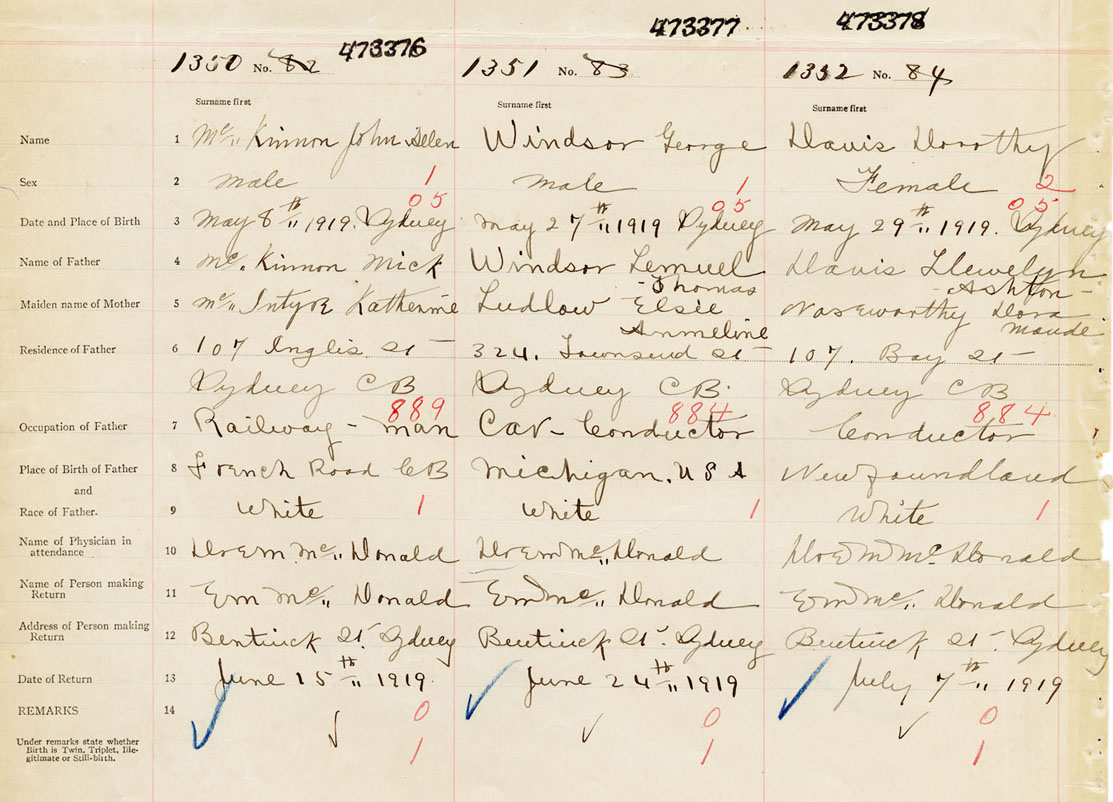 473376 473377 473378
1350 No. 82 1351 No. 83 1352 No. 84
Surname first Surname first Surname first
Name 1 Mc" Kinnon John Windsor George Davis Dorothy
Sex 2 male 1 male 1 Female 2
05 05 05
Date and Place of Birth 3 May 8th" 1919. Sydney May 27th" 1919 Sydney May 29th" 1919. Sydney
Name of Father 4 Mc. Kinnon Mick Windsor Lemuel Davis Llewelyn
-Thomas -Ashton-
Maiden name of Mother 5 Mc" Intyre Katherine Ludlow Elsie Noseworthy Dora
Anmeline Maude
Residence of Father 6 107 Inglis St- 324. Townsend St- 107. Bay St-
Sydney CB Sydney CB. Sydney CB
889 884 884
Occupation of Father 7 Railway-man Car-Conductor Conductor
Place of Birth of Father 8 French Road CB Michigan. USA Newfoundland
and
Race of Father. 9 White 1 White 1 White 1
Name of Physician in
attendance 10 Dr E M Mc" Donald Dr E M Mc" Donald Dr E M Mc. Donald
Name of Person making
Return 11 EM Mc" Donald EM Mc" Donald EM Mc" Donald
Address of Person making
Return 12 Bentinck St- Sydney Bentinck St- Sydney Bentinck St- Sydney
Date of Return 13 June 15th" 1919. June 24th" 1919 July 7th" 1919
REMARKS 14 0 0 0
Under remarks state whether
Birth is Twin, Triplet, Ille-
gitimate or Still-birth. 1 1 1